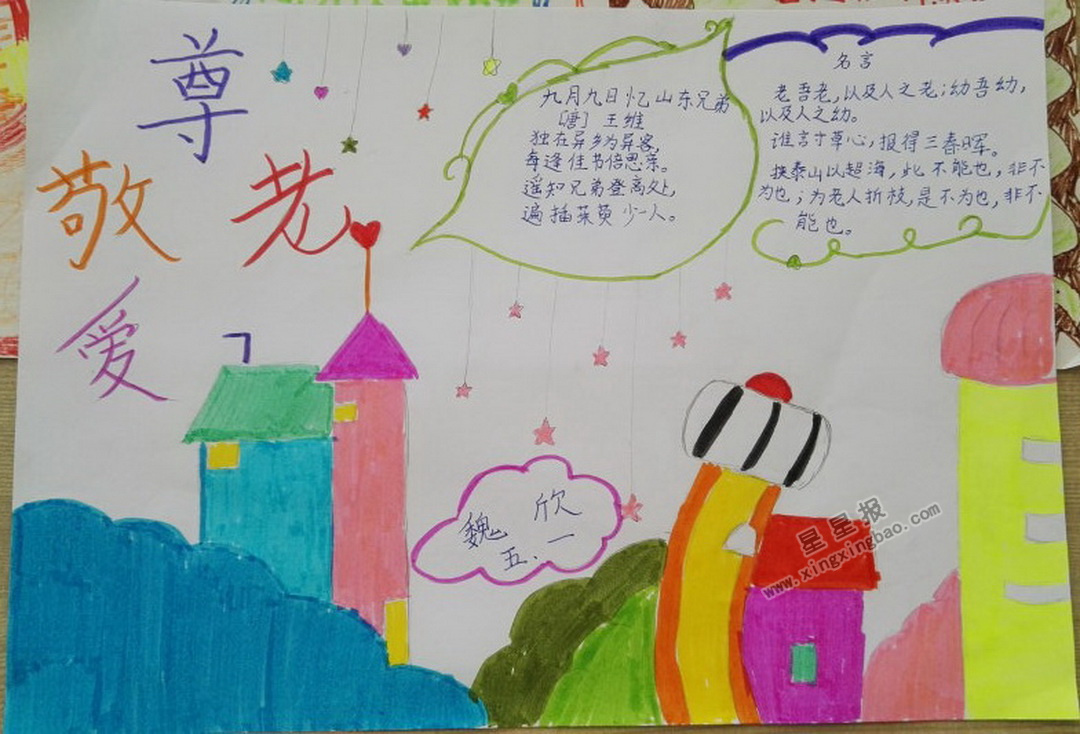 尊
敬 老
爱
九月九日忆山东兄弟
[唐] 王维
独在异乡为异客,
每逢佳书倍思亲。
遥知兄弟登高处,
遍插茱萸少一人。
名言
老吾老,以及人之老;幼吾幼,
以及人之幼。
谁言寸草心,报得三春晖。
挟泰山以超海,此不能也,非不
为也;为老人折枝,是不为也,非不
能也。
魏 欣
五.一
星星报
www.xingxingbao.com